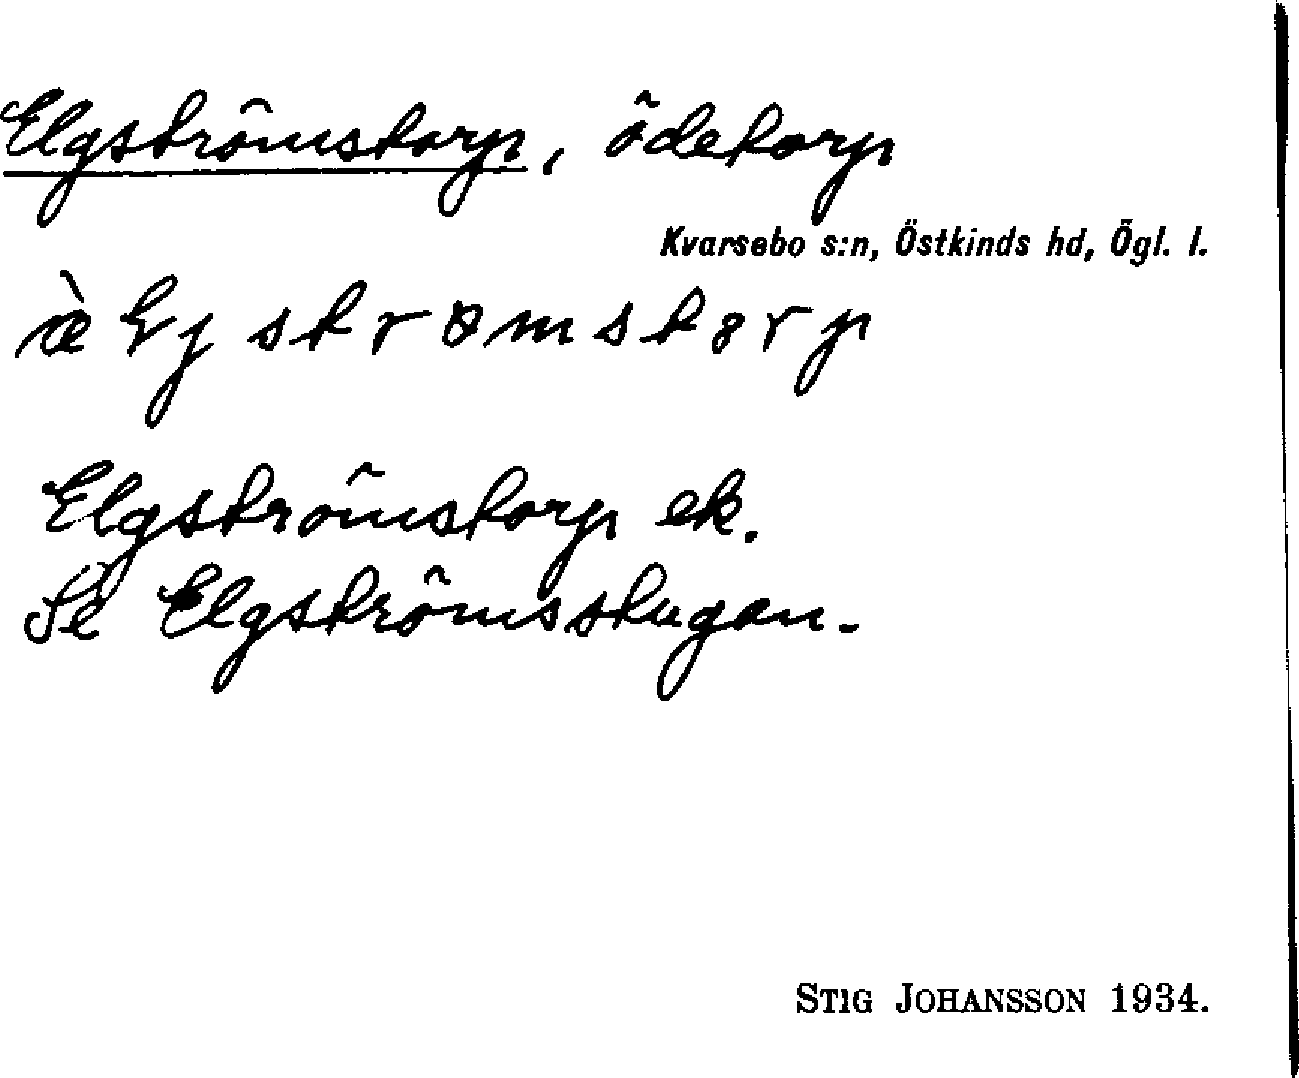 Elgströmstorp, ödetorp
Kvarsebo s:n, Östkinds hd, Ögl. l.
Elgströmstorp ek.
Se Elgströmsstugan.
STIG JOHANSSON 1934.